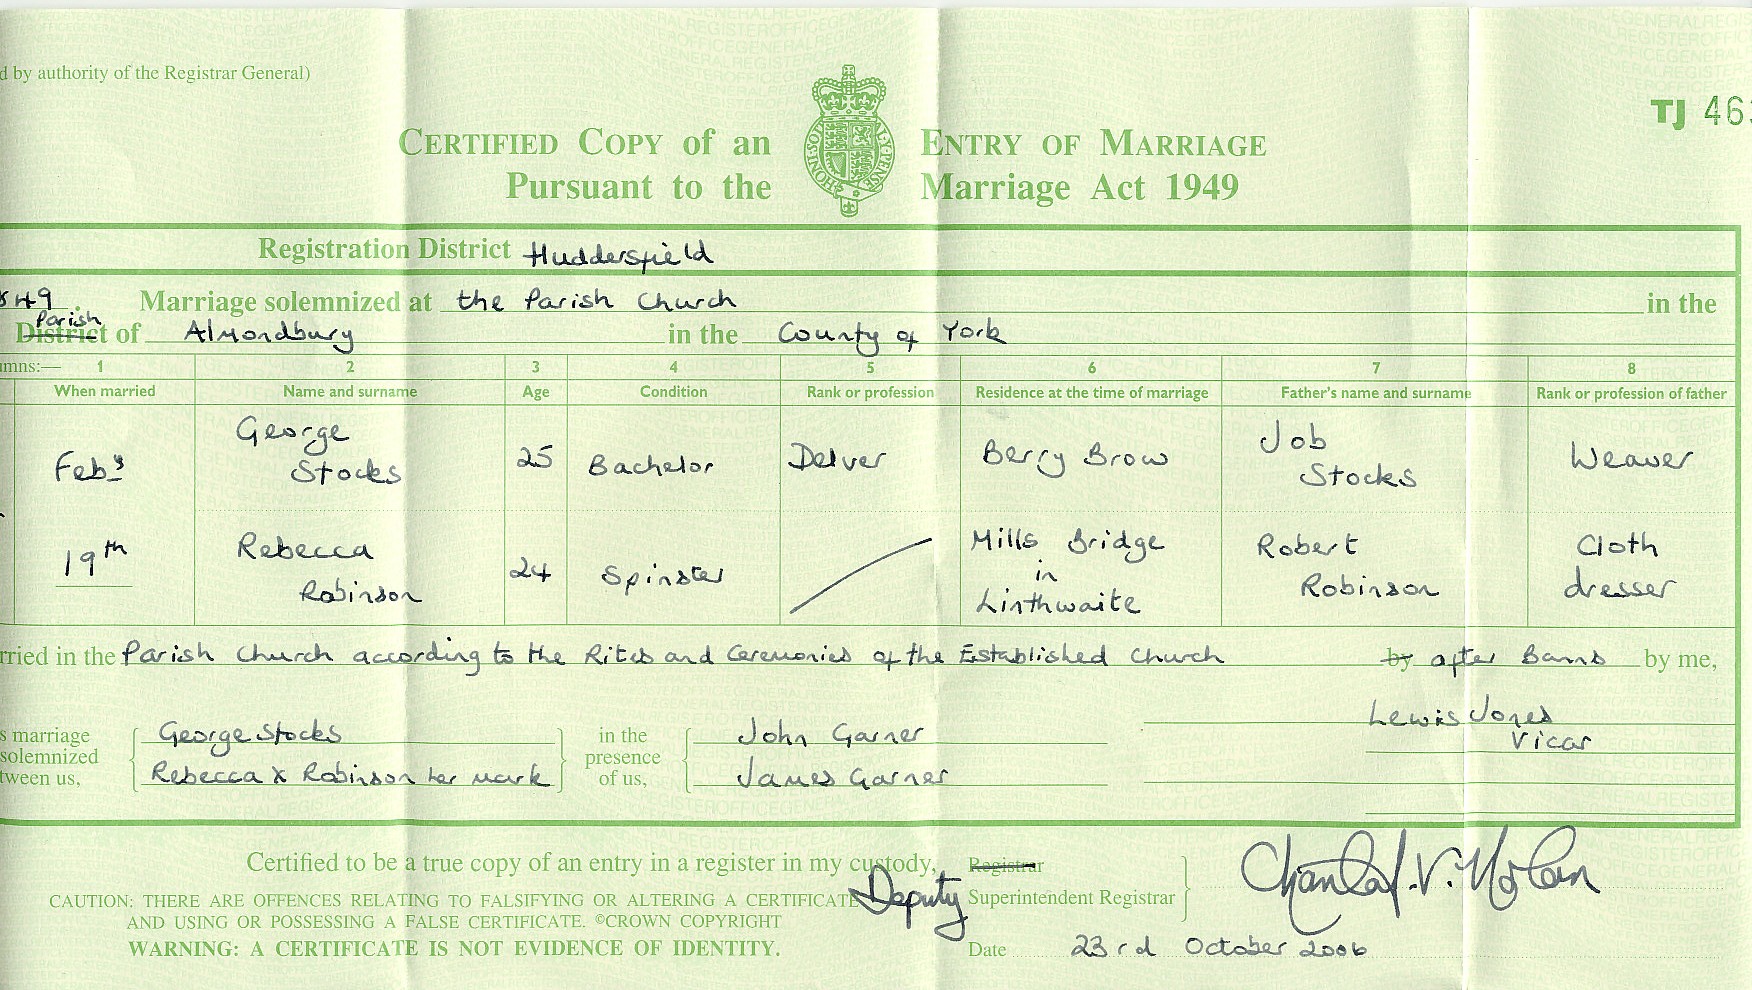 d by authority of the Registrar General)
TJ 46
CERTIFIED COPY of an ENTRY OF MARRIAGE
Pursuant to the Marriage Act 1949
HONI·SOIT·Q AL·Y·PENSE
Registration District Huddersfield
849. Marriage solemnized at the Parish Church in the
Parish
District of Almondbury in the County of York
mns:— 1 2 3 4 5 6 7 8
When married Name and surname Age Condition Rank or profession Residence at the time of marriage Father's name and surname Rank or profession of father
Feby George Stocks 25 Bachelor Delver Berry Brow Job Stocks Weaver
19th Rebecca Robinson 24 Spinster Mills Bridge in Linthwaite Robert Robinson Cloth dresser
rried in the Parish Church according to the Rites and Ceremonies of the Established Church by after Banns by me,
s marriage solemnized tween us,
George Stocks
Rebecca X Robinson her mark
in the presence of us,
John Garner
James Garner
Lewis Jones
Vicar
Certified to be a true copy of an entry in a register in my custody,
Registrar
Deputy Superintendent Registrar
Chantal.V.Nolan
CAUTION: THERE ARE OFFENCES RELATING TO FALSIFYING OR ALTERING A CERTIFICATE
AND USING OR POSSESSING A FALSE CERTIFICATE. ©CROWN COPYRIGHT
WARNING: A CERTIFICATE IS NOT EVIDENCE OF IDENTITY.
Date 23rd October 2006